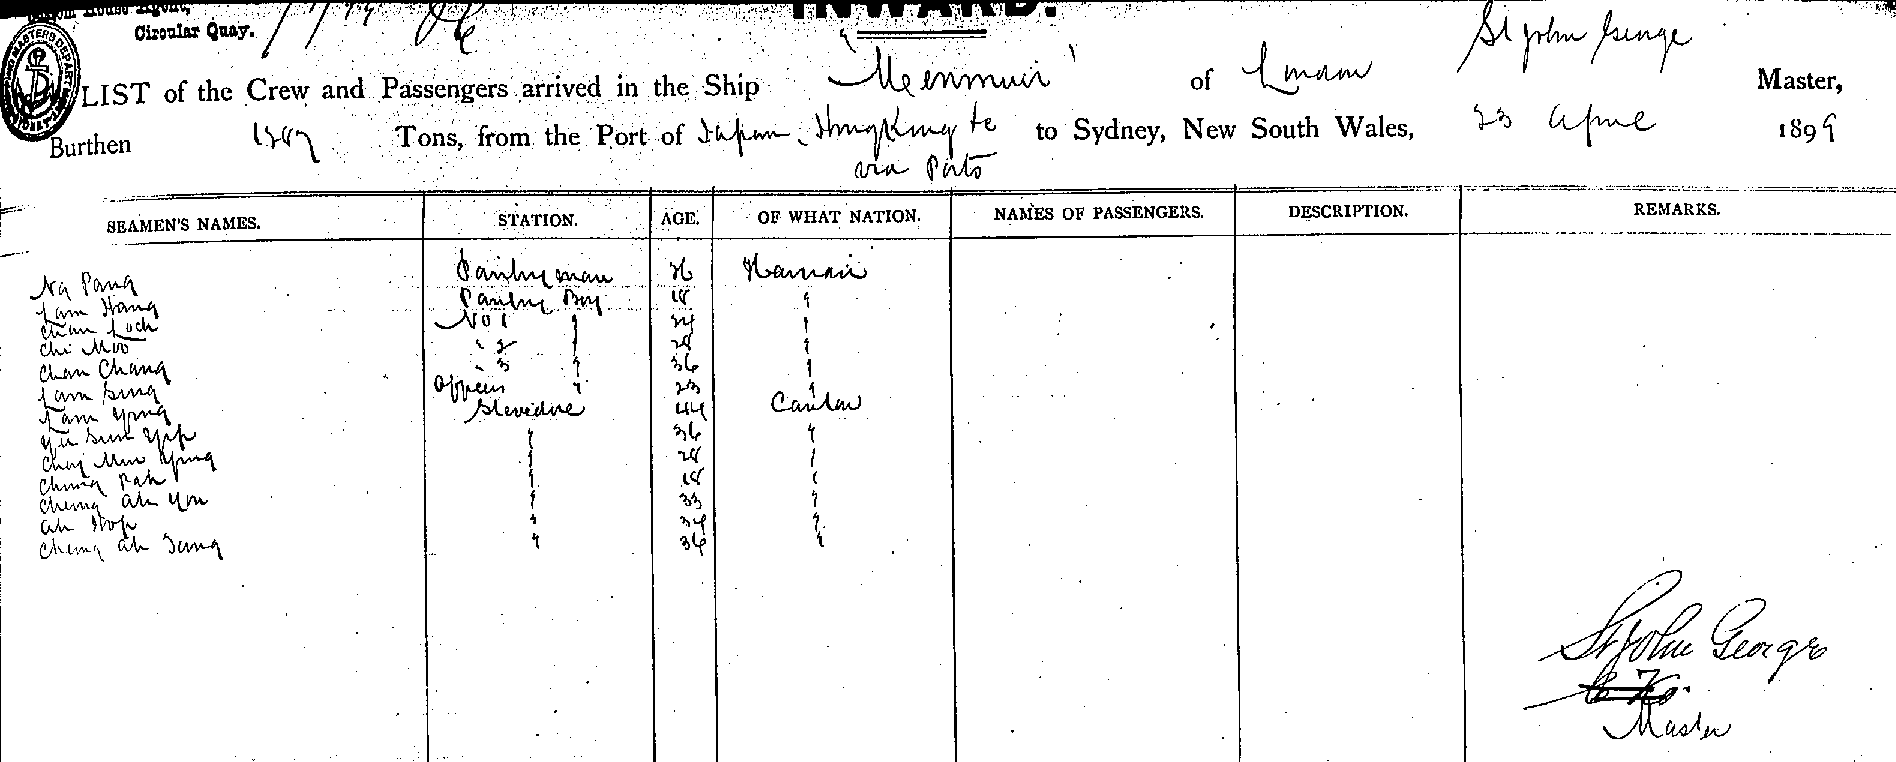 Custom House Agent,
Circular Quay.
INWARD.
St John George
LIST of the Crew and Passengers arrived in the Ship "Menmuir" of London Master,
Burthen 1287 Tons, from the Port of Japan, Hongkong &c to Sydney, New South Wales, 23 April 1899
via Ports
SEAMEN'S NAMES. STATION. AGE. OF WHAT NATION. NAMES OF PASSENGERS. DESCRIPTION. REMARKS.
Ng Pang Pantryman 26 Hainan
Lam Hang Pantry Boy 18 "
Chan Loch No 1 " 24 "
Chi Moo " 2 " 28 "
Chan Chang " 3 " 36 "
Lam Sing Officers " 23 "
Lam Yong Stevedore 44 Canton
Yu Sun Yip " 36 "
Choy Mun Yung " 28 "
Chung Pak " 18 "
Cheong Ah You " 33 "
Ah Hop " 34 "
Cheong Ah Sang " 36 "
St John George
Master